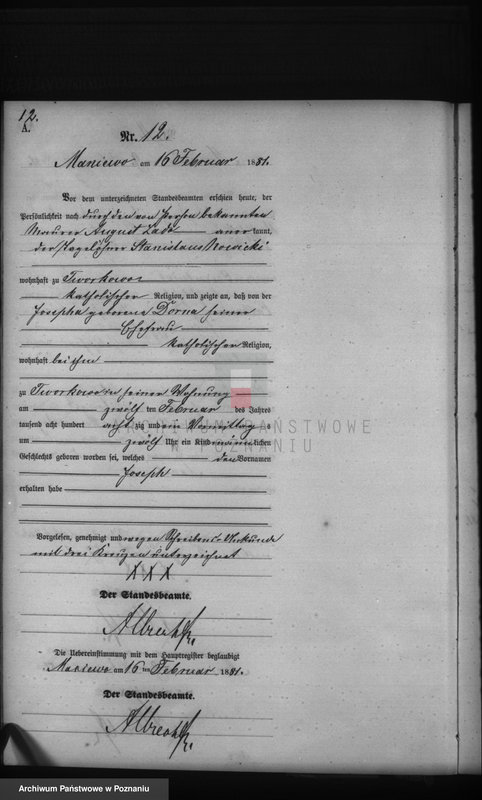 12.
A.
Nr. 12.
Maniewo am 16 Februar 1881.
Vor dem unterzeichneten Standesbeamten erschien heute, der
Persönlichkeit nach durch den von Person bekannten
Maurer August Lade anerkannt,
der Tagelöhner Stanislaus Nowicki
wohnhaft zu Tworkowo
katholischer Religion, und zeigte an, daß von der
Josepha geborene Dorna seiner
Ehefrau
katholischer Religion,
wohnhaft bei ihm
zu Tworkowo in seiner Wohnung
am zwölf ten Februar des Jahres
tausend acht hundert acht zig und ein Vormittags
um zwölf Uhr ein Kind männlichen
Geschlechts geboren worden sei, welches den Vornamen
Joseph
erhalten habe
Vorgelesen, genehmigt und wegen Schreibens-Unkunde
mit drei Kreuzen unterzeichnet
X X X
Der Standesbeamte.
Albrecht
Die Uebereinstimmung mit dem Hauptregister beglaubigt
Maniewo am 16 ten Februar 1881.
Der Standesbeamte.
Albrecht
ARCHIWUM PAŃSTWOWE
W POZNANIU
Archiwum Państwowe w Poznaniu